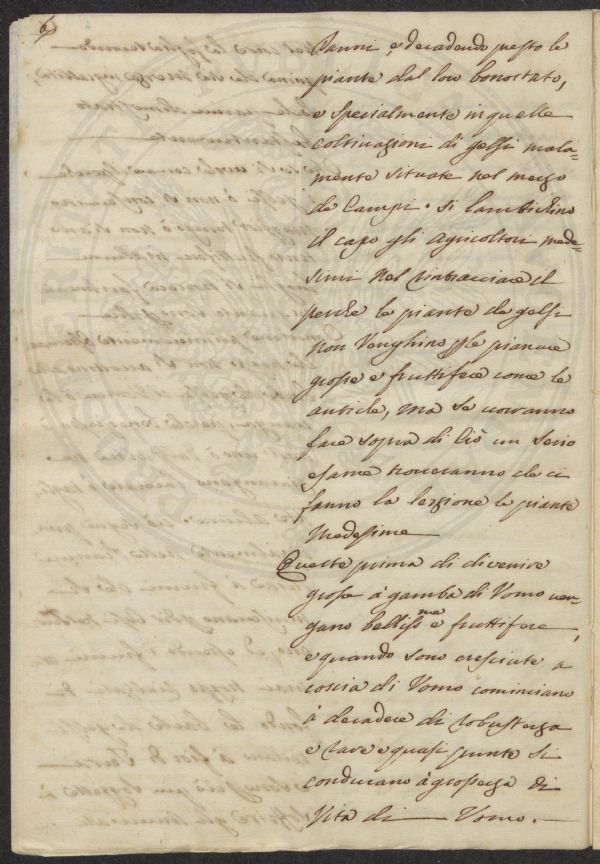 6
Danni, e decadendo presto le
piante dal loro bonostato,
e specialmente in quelle
coltivazioni di gelsi mala=
mente situate nel mezzo
de Campi. Si lambichino
il capo gli agricoltori mede=
simi nel rintracciare il
perche le piante de gelsi
non venghino p le pianure
grosse e fruttifere come le
antiche, ma se vorranno
fare sopra di ciò un serio
esame troveranno che ci
fanno la lezzione le piante
medesime
Queste prima di divenire
grosse à gamba di Vomo ven=
gano belliss.me e fruttifere,
e quando sono cresciute a
coscia di Vomo cominciano
à decadere di robustezza
e rare e quasi punte si
conducano à grossezza di
Vita di Vomo.